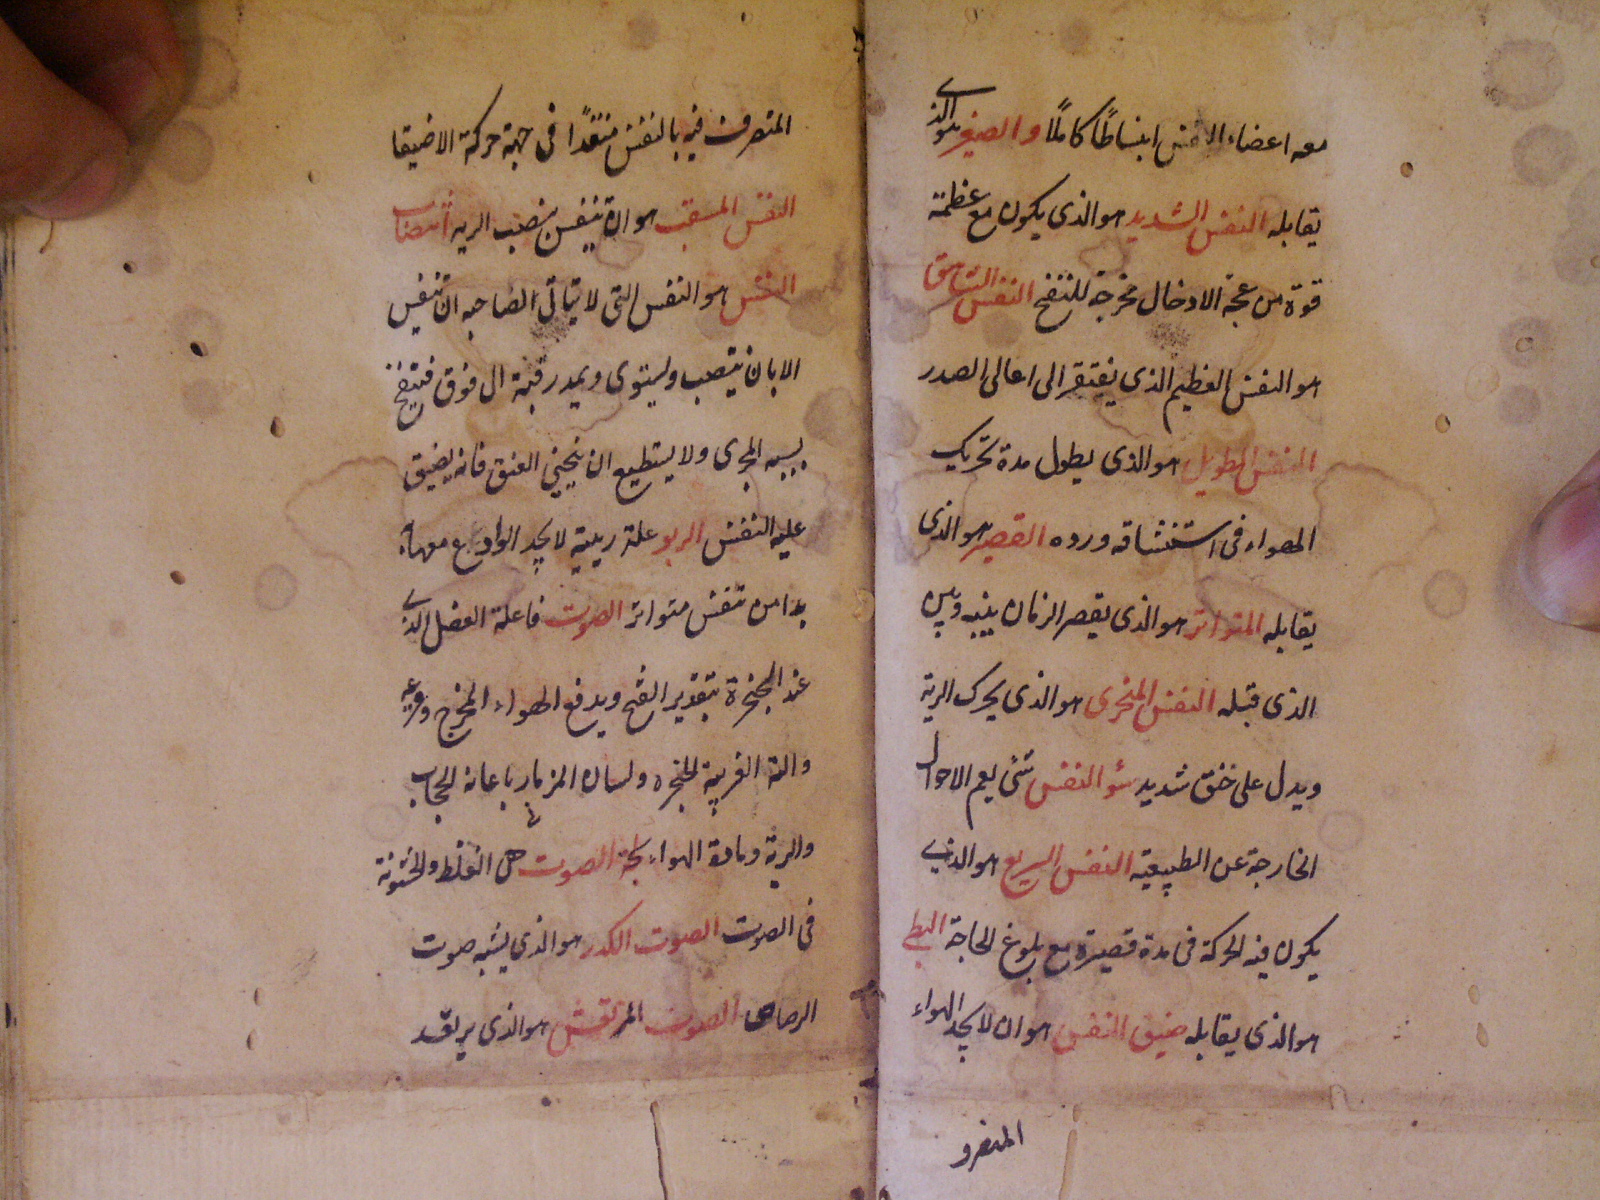 معه اعضاء التنفس انبساطًا كاملًا والصغير هو الذى
يقابله النفس الشديد هو الذى يكون مع عظمة
قوة من عجة الادخال مخرجة للنفخ النفس الشاهق
هو النفس العظيم الذى يفتقر الى اعالى الصدر
النفس الطويل هو الذى يطول مدة تحريك
الهواء فى استنشاقه ورده القصير هو الذى
يقابله المتواتر هو الذى يقصر الزمان بينه وبين
الذى قبله النفس المنخرى هو الذى يحرك الرية
ويدل على خنق شديد سؤ النفس شئ يعم الاحوال
الخارجة عن الطبيعية النفس السريع هو الذى
يكون فيه الحركة فى مدة قصيرة مع بلوغ الحاجة البطى
هو الذى يقابله ضيق النفس هو ان لا يجد الهواء
المتصرف
المتصرف فيه بالنفس منفذًا فى جهة حركة الا ضيقا
النفس هو ان تنفس ينصب الريه انتصاب
النفس هو النفس التى لا يتاتى لصاحبه ان تنفس
الا بان ينتصب وليتوى ويمد رقبة الى فوق فتنفتح
بسببه المجرى ولا يستطيع ان ينحنى العنق فانه يضيق
عليه النفس الربو علة ريية لا يجد الوادع معها
بدا من تنفس متواتر الصوت فاعلة العضل الذى
عند الحنجرة بتقدير الفتح ويدفع الهواء المخرج وقرعه
والة القريبة الحنجره ولسان المزمار باعانه الحجاب
والرية ومادة الهواء بحة الصوت هى الغلظ والخشونة
فى الصوت الصوت الكدر هو الذى يشبه صوت
الرصاص الصوت المرتعش هو الذى يرتعد